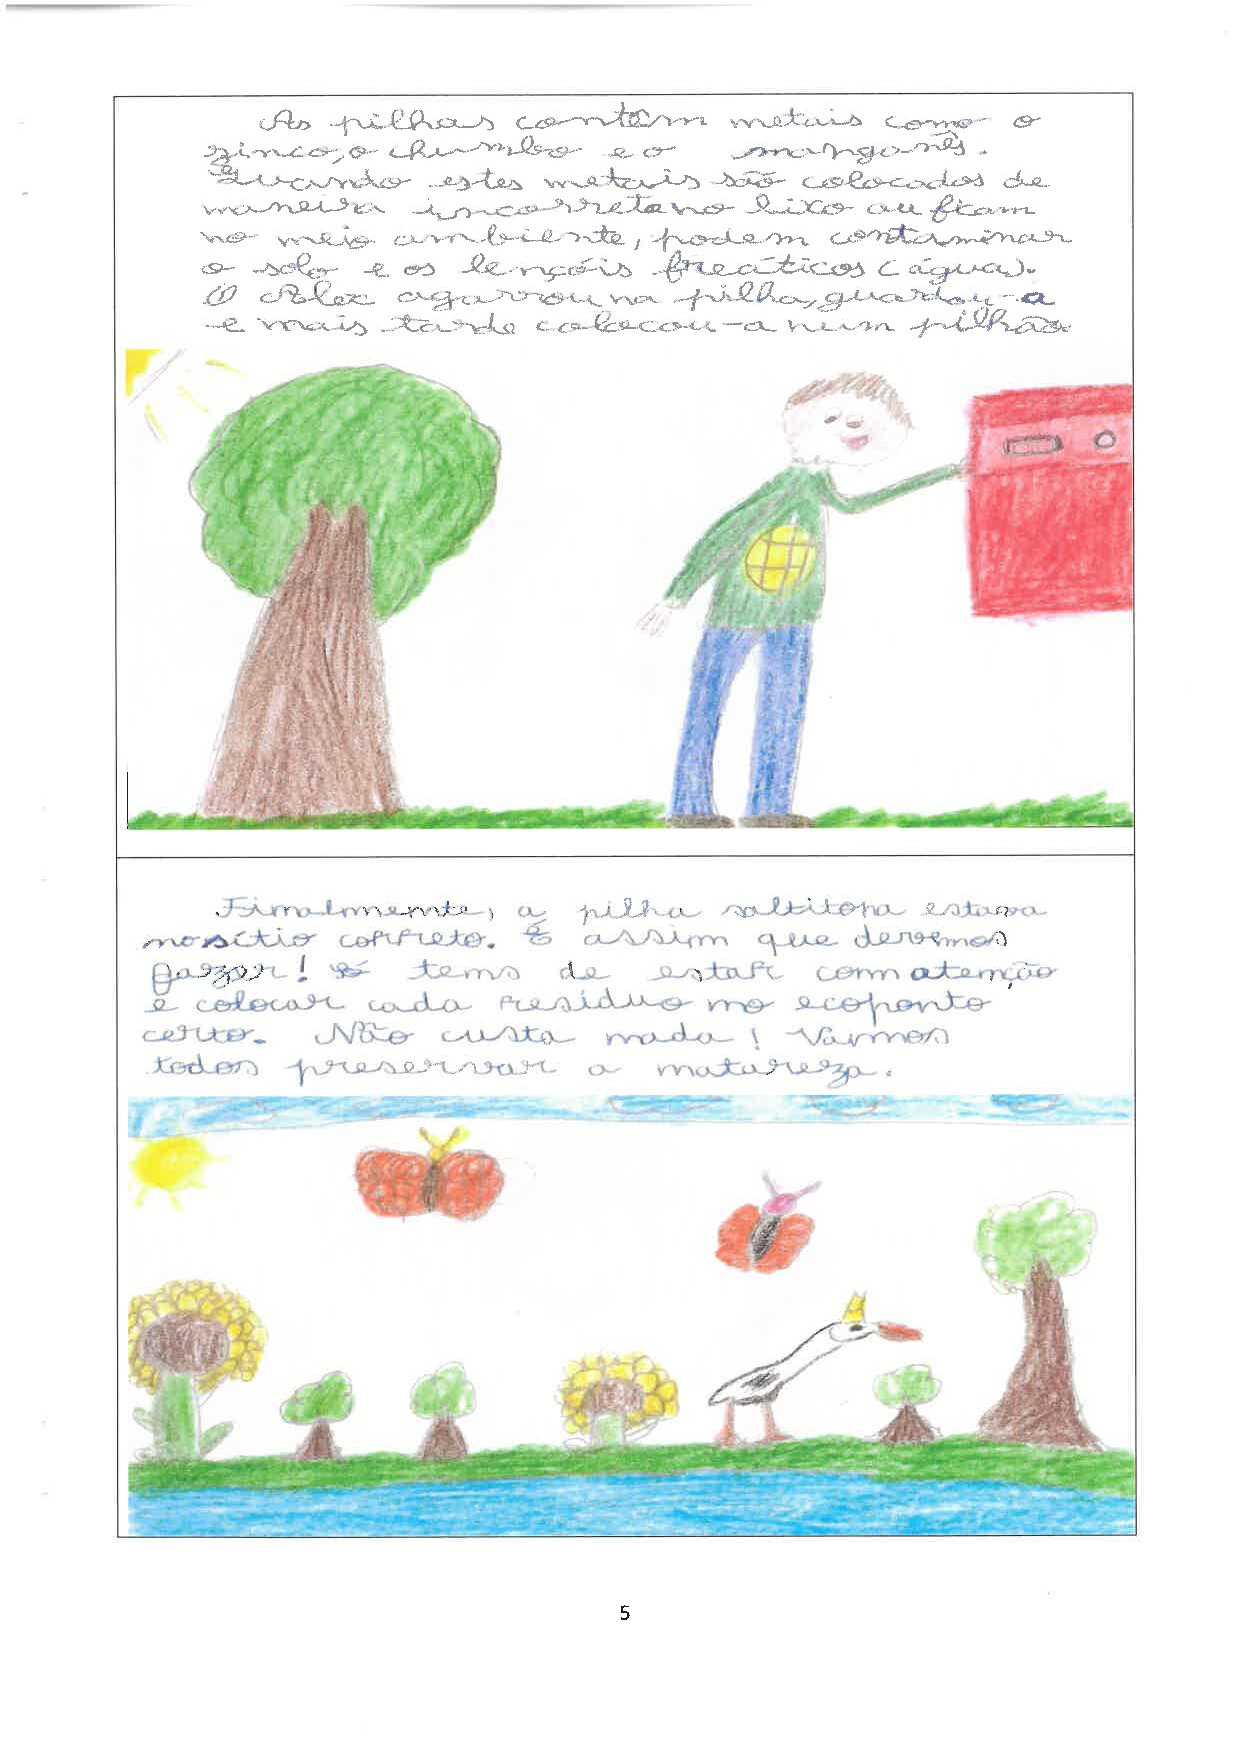 As pilhas contêm metais como o
zinco, o chumbo e o manganês.
Quando estes metais são colocados de
maneira incorreta no lixo ou ficam
no meio ambiente, podem contaminar
o solo e os lençóis freáticos (água).
O Alex agarrou na pilha, guardou-a
e mais tarde colocou-a num pilhão
Finalmente, a pilha saltitona estava
no sítio correto. É assim que devemos
fazer! Só tens de estar com atenção
e colocar cada resíduo no ecoponto
certo. Não custa nada! Vamos
todos preservar a natureza.
5